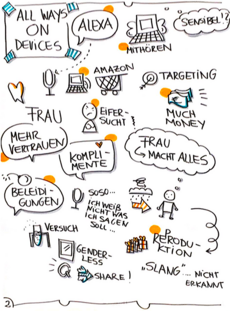 ALL WAYS
ON
DEVICES
ALEXA
SENSIBEL!?
MITHÖREN
AMAZON
TARGETING
FRAU
EIFER-
SUCHT
MUCH
MONEY
MEHR
VERTRAUEN
KOMPLI-
MENTE
FRAU
MACHT ALLES
BELEIDI-
GUNGEN
SOSO...
ICH WEIß
NICHT WAS
ICH SAGEN
SOLL...
VERSUCH
GENDER-
LESS
SHARE!
REPRODU-
KTION
„SLANG"... NICHT
ERKANNT
2